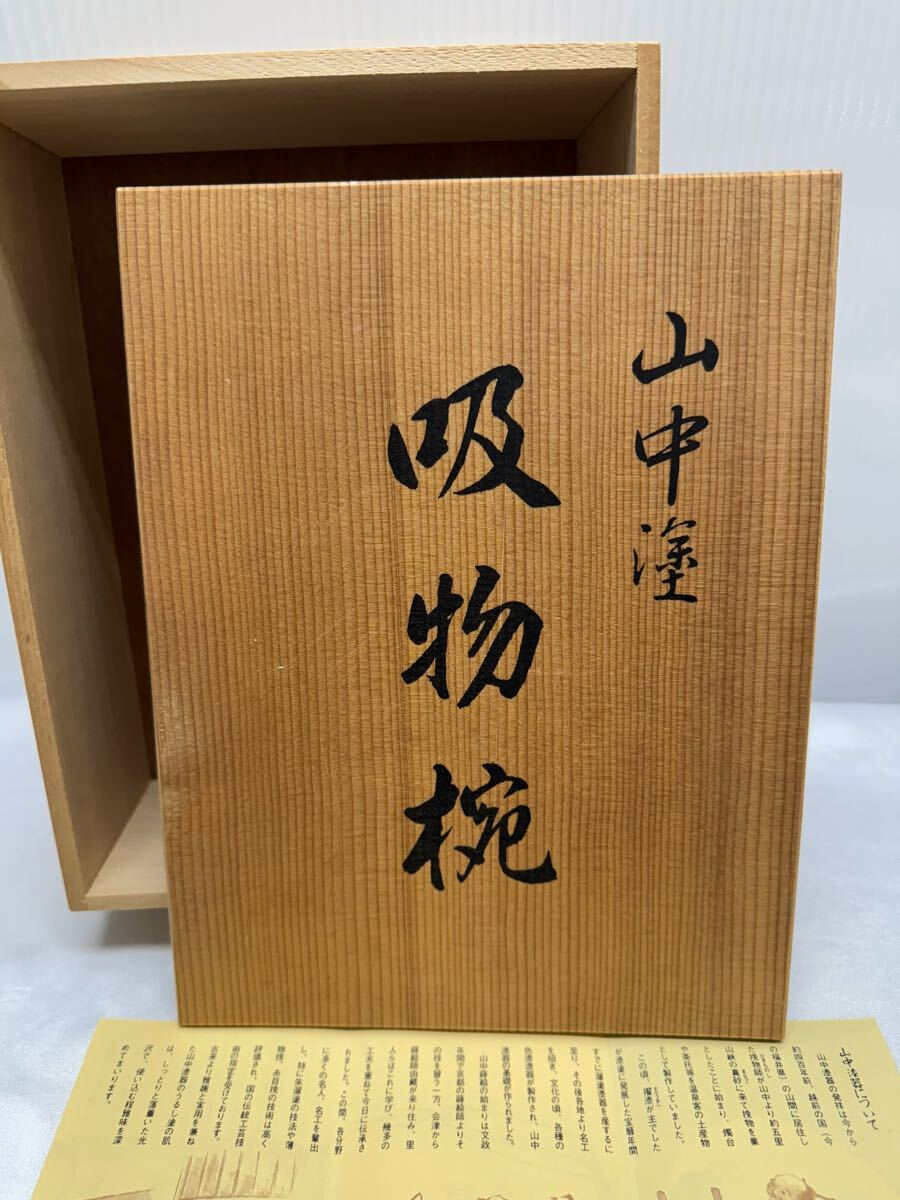 山中塗
吸物椀
山中漆器について
山中漆器の発祥は今から
約四百年前、越前の国（今
の福井県）の山間に居住し
た挽物師が山中より約五里
山峡の真砂に来て挽物を業
としたことに始まり、燭台
や茶托等を温泉客の土産物
として製作していました。
この頃、擢漆が主でした
が漆塗に発展した宝暦年間
すでに溜塗漆器を産するに
至り、その後各地より名工
を招き、文化の頃、各種の
色漆漆器が製作され、山中
漆器の基礎が作られました。
山中蒔絵の始まりは文政
年間で京都の蒔絵師よりそ
の技を習う一方、会津から
蒔絵師由蔵が来り住み、里
人らはこれに学び、幾多の
工夫を重ねて今日に伝承さ
れました。この間、各分野
に多くの名人、名工を輩出
し、特に朱溜塗の技法や薄
物挽、糸目挽の技術は高く
評価され、国の伝統工芸技
術の指定を受けております。
古来より雅趣と実用を兼ね
た山中漆器のうるし塗の肌
は、しっとりと落着いた光
沢で、使い込む程雅味を深
めてまいります。